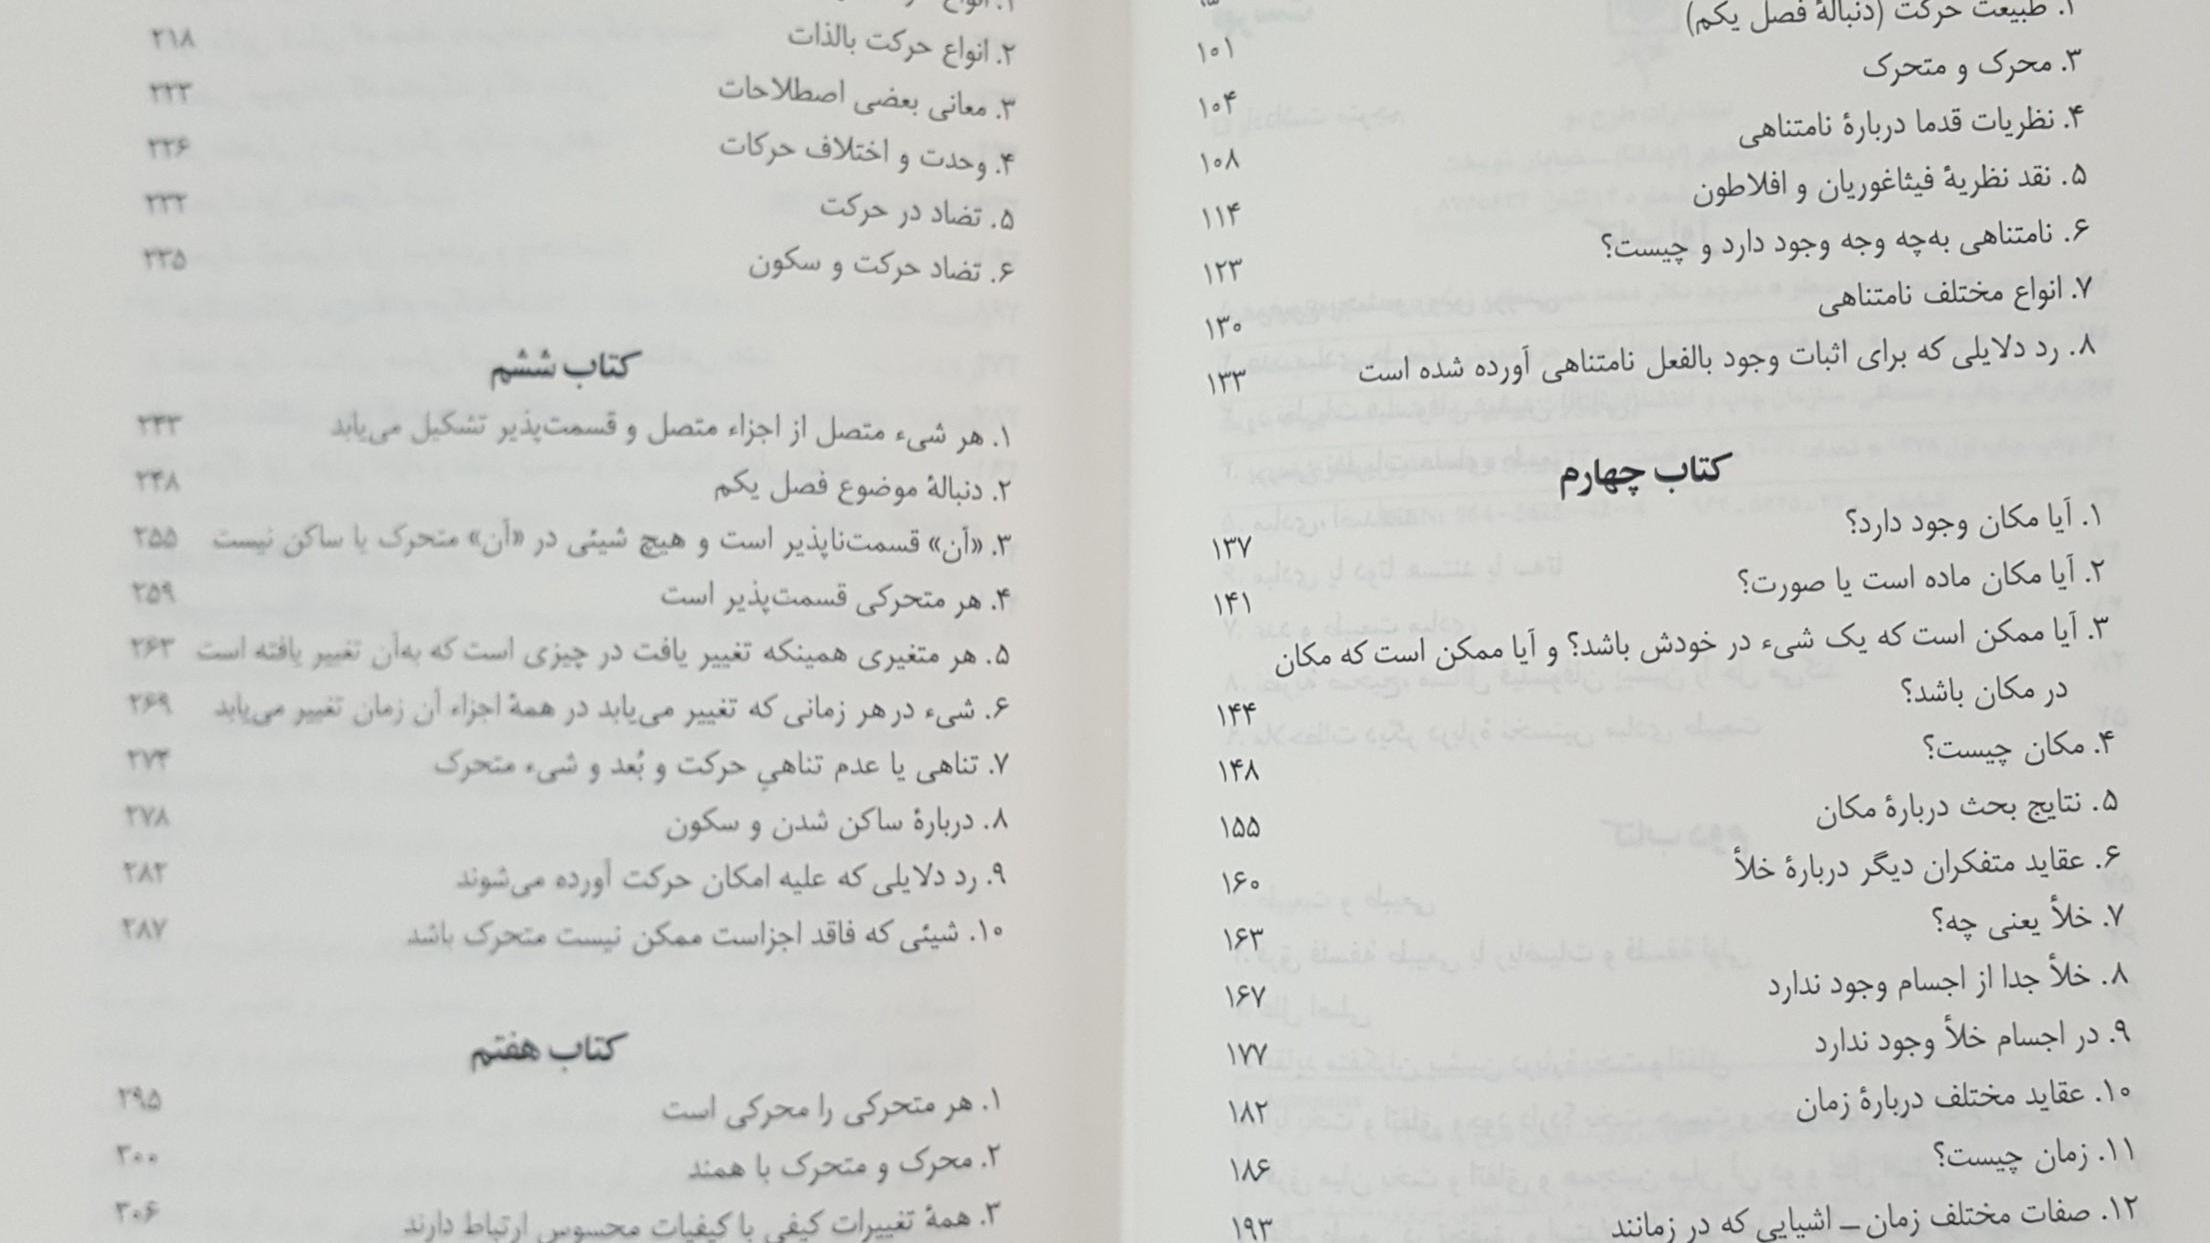 ۲. طبیعت حرکت (دنبالهٔ فصل یکم) ۱۰۱
۳. محرک و متحرک ۱۰۴
۴. نظریات قدما دربارهٔ نامتناهی ۱۰۸
۵. نقد نظریهٔ فیثاغوریان و افلاطون ۱۱۴
۶. نامتناهی به‌چه وجه وجود دارد و چیست؟ ۱۲۳
۷. انواع مختلف نامتناهی ۱۳۰
۸. رد دلایلی که برای اثبات وجود بالفعل نامتناهی آورده شده است ۱۳۳
کتاب چهارم
۱. آیا مکان وجود دارد؟ ۱۳۷
۲. آیا مکان ماده است یا صورت؟ ۱۴۱
۳. آیا ممکن است که یک شیء در خودش باشد؟ و آیا ممکن است که مکان
در مکان باشد؟ ۱۴۴
۴. مکان چیست؟ ۱۴۸
۵. نتایج بحث دربارهٔ مکان ۱۵۵
۶. عقاید متفکران دیگر دربارهٔ خلأ ۱۶۰
۷. خلأ یعنی چه؟ ۱۶۳
۸. خلأ جدا از اجسام وجود ندارد ۱۶۷
۹. در اجسام خلأ وجود ندارد ۱۷۷
۱۰. عقاید مختلف دربارهٔ زمان ۱۸۲
۱۱. زمان چیست؟ ۱۸۶
۱۲. صفات مختلف زمان ــ اشیایی که در زمانند ۱۹۳
۲. انواع حرکت بالذات ۲۱۸
۳. معانی بعضی اصطلاحات ۲۲۳
۴. وحدت و اختلاف حرکات ۲۲۶
۵. تضاد در حرکت ۲۳۲
۶. تضاد حرکت و سکون ۲۳۵
کتاب ششم
۱. هر شیء متصل از اجزاء متصل و قسمت‌پذیر تشکیل می‌یابد ۲۴۳
۲. دنبالهٔ موضوع فصل یکم ۲۴۸
۳. «آن» قسمت‌ناپذیر است و هیچ شیئی در «آن» متحرک یا ساکن نیست ۲۵۵
۴. هر متحرکی قسمت‌پذیر است ۲۵۹
۵. هر متغیری همینکه تغییر یافت در چیزی است که به‌آن تغییر یافته است ۲۶۳
۶. شیء در هر زمانی که تغییر می‌یابد در همهٔ اجزاء آن زمان تغییر می‌یابد ۲۶۹
۷. تناهی یا عدم تناهیِ حرکت و بُعد و شیء متحرک ۲۷۴
۸. دربارهٔ ساکن شدن و سکون ۲۷۸
۹. رد دلایلی که علیه امکان حرکت آورده می‌شوند ۲۸۲
۱۰. شیئی که فاقد اجزاست ممکن نیست متحرک باشد ۲۸۷
کتاب هفتم
۱. هر متحرکی را محرکی است ۲۹۵
۲. محرک و متحرک با همند ۳۰۰
۳. همهٔ تغییرات کیفی با کیفیات محسوس ارتباط دارند ۳۰۶